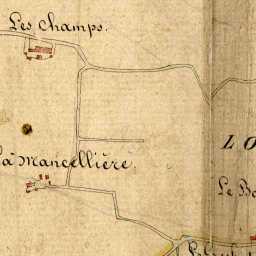 Les Champs.
LO
la Mancellière.
Le Bo